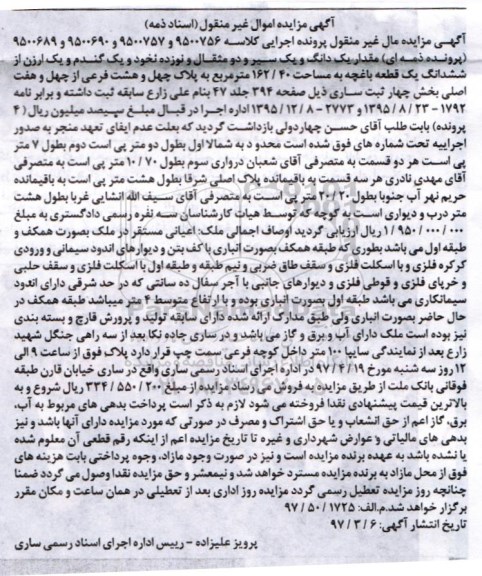 آگهی مزایده اموال غیر منقول (اسناد ذمه)
آگهـی مزایده مال غیر منقول پرونده اجرایی کلاسه ۹۵۰۰۷۵۶ و ۹۵۰۰۷۵۷ و ۹۵۰۰۶۹۰ و ۹۵۰۰۶۸۹
(پرونده ذمه ای) مقدار یک دانگ و یک سـیر و دو مثقـال و نوزده نخود و یـک گندم و یک ارزن از
ششدانگ یک قطعه باغچه به مساحت ۱۶۲/۴۰ مترمربع به پلاک چهل و هشت فرعی از چهل و هفت
اصلی بخش چهار ثبت ساری ذیل صفحه ۳۹۴ جلد ۴۷ بنام علی زارع سابقه ثبت داشته و برابر نامه
۱۷۹۲ - ۲۳ / ۸ / ۱۳۹۵ و ۲۷۷۳ - ۸ / ۱۲ / ۱۳۹۵ اداره اجـرا در قبـال مبلـغ سیصد میلیون ریال (۴
پرونده) بابت طلب آقای حسـن چهاردولی بازداشت گردید که بعلت عدم ایفای تعهد منجر به صدور
اجراییه تحت شماره های فوق شده است محدود به شمالا اول بطول دو متر پی است دوم بطول ۷ متر
پی است هر دو قسمت به متصرفی آقای شعبان درواری سوم بطول ۱۰/۷۰ متر پی است به متصرفی
آقای مهدی نادری هر سه قسمت به باقیمانده پلاک اصلی شرقا بطول هشت متر پی است به باقیمانده
حریم نهر آب جنوبا بطول ۲۰/۳۰ متر پی است به متصرفی آقای سـیف الله انشایی غربا بطول هشت
متر درب و دیواری است به کوچه که توسط هیات کارشناسان سه نفره رسمی دادگستری به مبلغ
۱/۹۵۰/۰۰۰/۰۰۰ ریال ارزیابی گردید اوصاف اجمالی ملک: اعیانی مستقر در ملک بصورت همکف و
طبقه اول می باشد بطوری که طبقه همکف بصورت انباری با کف بتن و دیوارهای اندود سیمانی و ورودی
کرکره فلزی و با اسکلت فلزی و سقف طاق ضربی و نیم طبقه و طبقه اول با اسکلت فلزی و سقف حلبی
و خرپای فلزی و قوطی فلزی و دیوارهای جانبی با آجر سفال ده سانتی که در حد شرقی دارای اندود
سیمانکاری می باشد طبقه اول بصورت انباری بوده و با ارتفاع متوسط ۴ متر میباشد طبقه همکف در
حال حاضر بصورت انباری ولی طبق مدارک ارائه شده دارای سابقه تولید و پرورش قارچ و بسته بندی
نیز بوده است ملک دارای آب و برق و گاز می باشد و در ساری جاده نکا بعد از سه راهی جنگل شهید
زارع بعد از نمایندگی سایپا ۱۰۰ متر داخل کوچه فرعی سمت چپ قرار دارد پلاک فوق از ساعت ۹ الی
۱۲ روز سه شنبه مورخ ۹۷/۴/۱۹ در اداره اجرای اسناد رسمی ساری واقع در ساری خیابان قارن طبقه
فوقانی بانک ملت از طریق مزایده به فروش می رسد مزایده از مبلغ ۳۳۴/۵۵۰/۲۰۰ ریال شروع و به
بالاترین قیمت پیشنهادی نقدا فروخته می شود لازم به ذکر است پرداخت بدهی های مربوط به آب،
برق، گاز اعم از حق انشعاب و یا حق اشتراک و مصرف در صورتی که مورد مزایده دارای آنها باشد و نیز
بدهی های مالیاتی و عوارض شهرداری و غیره تا تاریخ مزایده اعم از اینکه رقم قطعی آن معلوم شده
یا نشده باشد به عهده برنده مزایده است و نیز در صورت وجود مازاد، وجوه پرداختی بابت هزینه های
فوق از محل مازاد به برنده مزایده مسترد خواهد شد و نیمعشر و حق مزایده نقدا وصول می گردد ضمنا
چنانچه روز مزایده تعطیل رسمی گردد مزایده روز اداری بعد از تعطیلی در همان ساعت و مکان مقرر
برگزار خواهد شد.م.الف: ۱۷۲۵ / ۵۰ / ۹۷
تاریخ انتشار آگهی: ۶ / ۳ / ۹۷
پرویز علیزاده - رییس اداره اجرای اسناد رسمی ساری